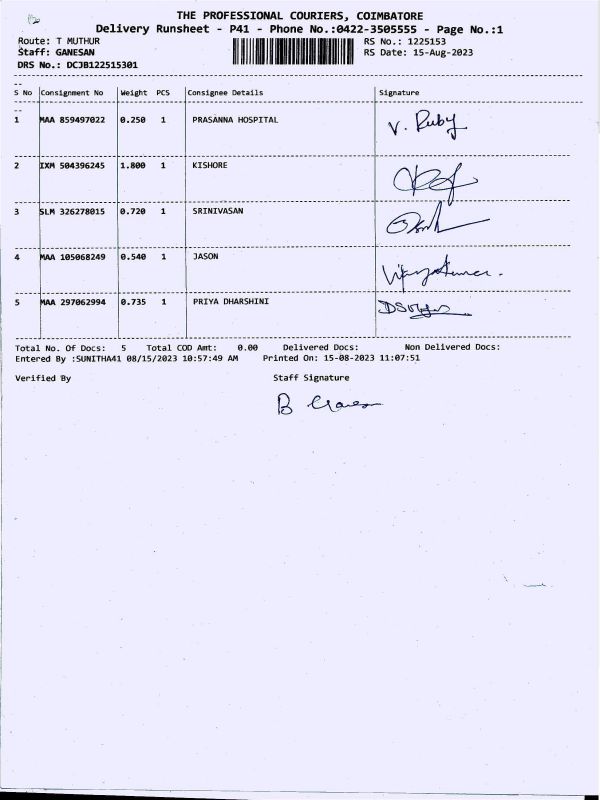 THE PROFESSIONAL COURIERS, COIMBATORE
Delivery Runsheet - P41 - Phone No.:0422-3505555 - Page No.:1
Route: T MUTHUR RS No.: 1225153
Staff: GANESAN RS Date: 15-Aug-2023
DRS No.: DCJB122515301
S No Consignment No Weight PCS Consignee Details Signature
1 MAA 859497022 0.250 1 PRASANNA HOSPITAL V. Ruby
2 IXM 504396245 1.800 1 KISHORE
3 SLM 326278015 0.720 1 SRINIVASAN
4 MAA 105068249 0.540 1 JASON
5 MAA 297062994 0.735 1 PRIYA DHARSHINI
Total No. Of Docs: 5 Total COD Amt: 0.00 Delivered Docs: Non Delivered Docs:
Entered By :SUNITHA41 08/15/2023 10:57:49 AM Printed On: 15-08-2023 11:07:51
Verified By Staff Signature
B